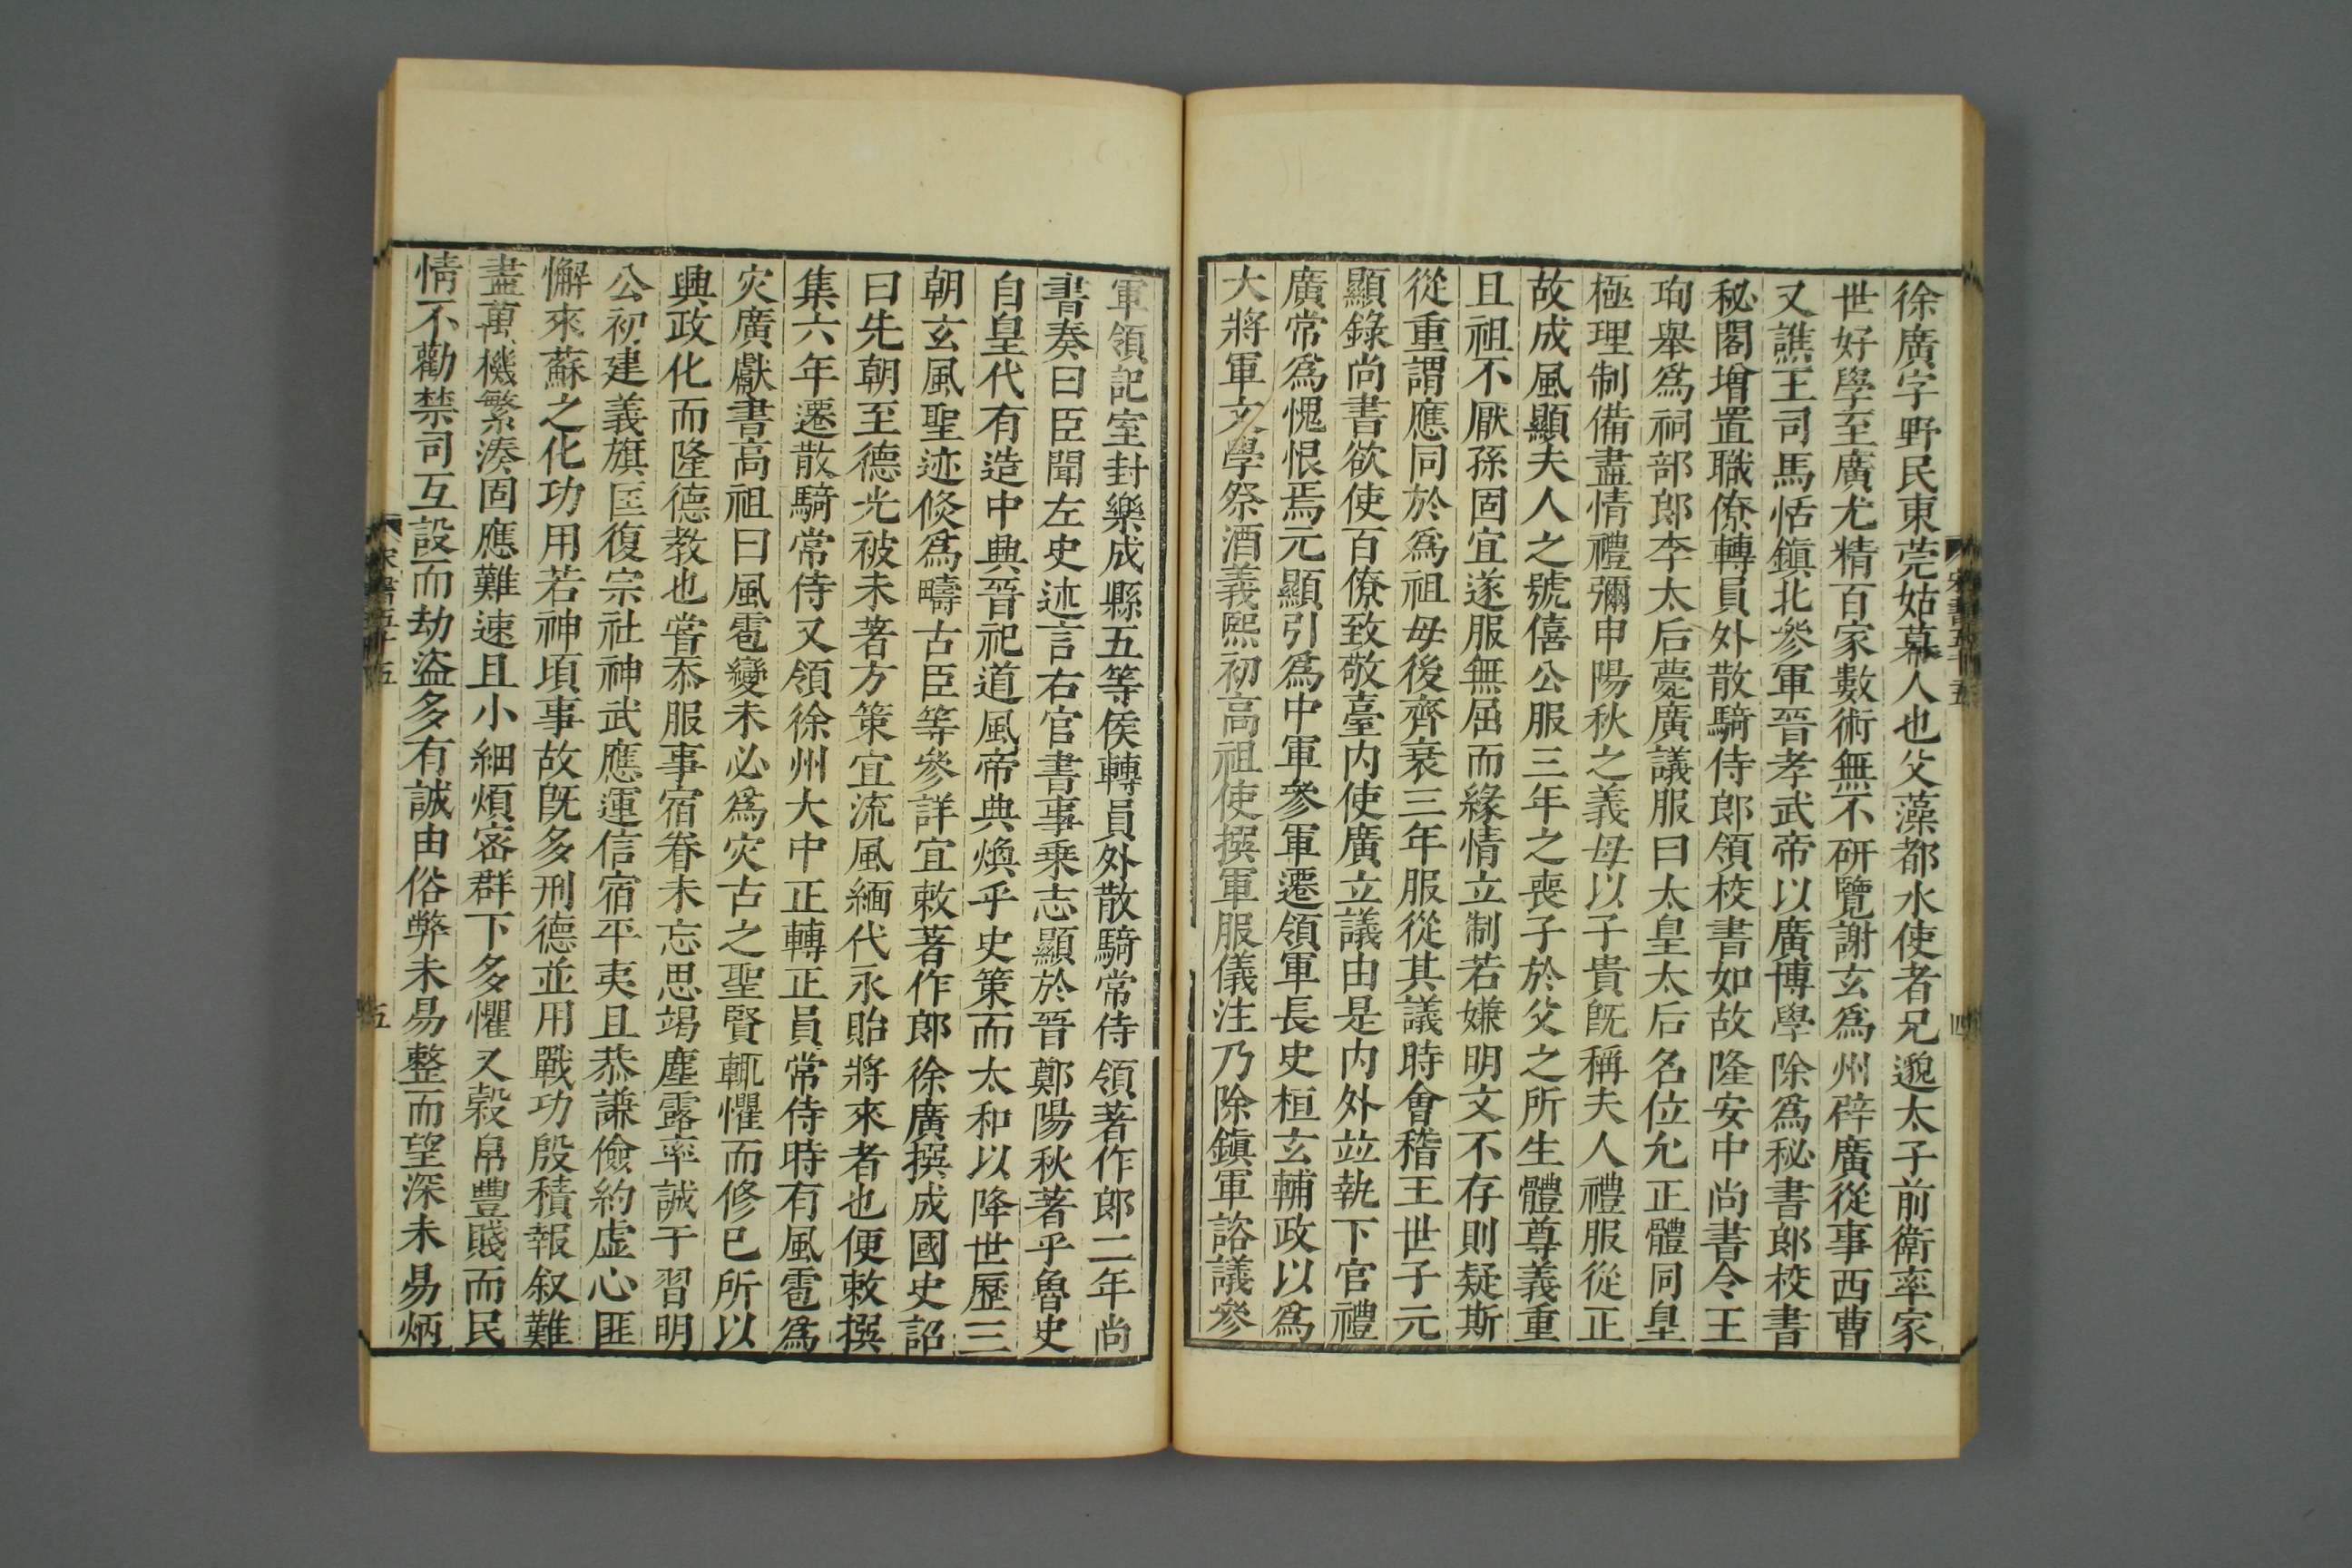 徐廣字野民東莞姑幕人也父藻都水使者兄邈太子前衛率家
世好學至廣尤精百家數術無不研覽謝玄爲州辟廣從事西曹
又譙王司馬恬鎭北參軍晉孝武帝以廣博學除爲秘書郎校書
秘閣增置職僚轉員外散騎侍郎領校書如故隆安中尚書令王
珣舉爲祠部郎李太后薨廣議服曰太皇太后名位允正體同皇
極理制備盡情禮彌申陽秋之義母以子貴旣稱夫人禮服從正
故成風顯夫人之號僖公服三年之喪子於父之所生體尊義重
且祖不厭孫固宜遂服無屈而緣情立制若嫌明文不存則疑斯
從重謂應同於爲祖母後齊衰三年服從其議時會稽王世子元
顯錄尚書欲使百僚致敬臺內使廣立議由是內外竝執下官禮
廣常爲愧恨焉元顯引爲中軍參軍遷領軍長史桓玄輔政以爲
大將軍文學祭酒義熙初高祖使撰軍服儀注乃除鎭軍諮議參
宋書五十五
四
軍領記室封樂成縣五等侯轉員外散騎常侍領著作郎二年尚
書奏曰臣聞左史述言右官書事乗志顯於晉鄭陽秋著乎魯史
自皇代有造中興晉祀道風帝典煥乎史策而太和以降世歷三
朝玄風聖迹倐爲疇古臣等參詳宜敕著作郎徐廣撰成國史詔
曰先朝至德光被未著方策宜流風緬代永貽將來者也便敕撰
集六年遷散騎常侍又領徐州大中正轉正員常侍時有風雹爲
灾廣獻書高祖曰風雹變未必爲灾古之聖賢輒懼而修已所以
興政化而隆德教也嘗忝服事宿眷未忘思竭塵露率誠于習明
公初建義旗匡復宗社神武應運信宿平夷且恭謙儉約虛心匪
懈來蘇之化功用若神頃事故旣多刑德並用戰功殷積報叙難
盡萬機繁湊固應難速且小細煩密群下多懼又穀帛豐賤而民
情不勸禁司互設而劫盜多有誠由俗弊未易整而望深未易炳
宋書五十五
五